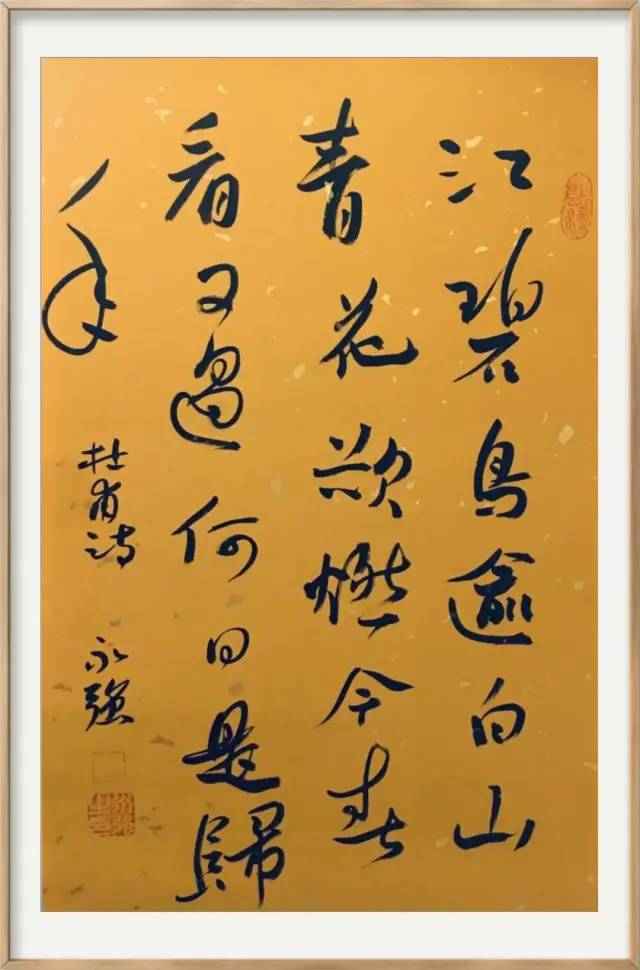 江碧鳥逾白山
青花欲燃今春
看又過何日是歸
年
杜甫詩 永強